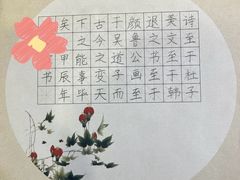 诗至于杜子
美文至于韩
退之书至于
颜鲁公画至
于吴道子而
古今之变天
下之能事毕
矣 甲辰年
书